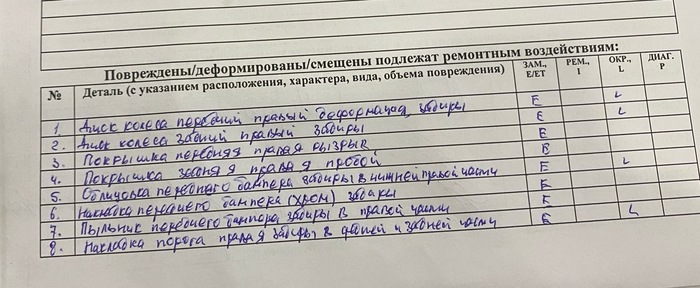 Повреждены/деформированы/смещены подлежат ремонтным воздействиям:
№ Деталь (с указанием расположения, характера, вида, объема повреждений) ЗАМ., E/ET РЕМ., I ОКР., L ДИАГ. P
1. Диск колеса передний правый деформация, задиры E L
2. Диск колеса задний правый задиры E L
3. Покрышка передняя правая разрыв E
4. Покрышка задняя правая пробой E
5. Облицовка переднего бампера задиры в нижней правой части E L
6. Накладка переднего бампера (хром) задиры E
7. Пыльник переднего бампера, задиры в правой части E
8. Накладка порога правая задиры в и задней части E L